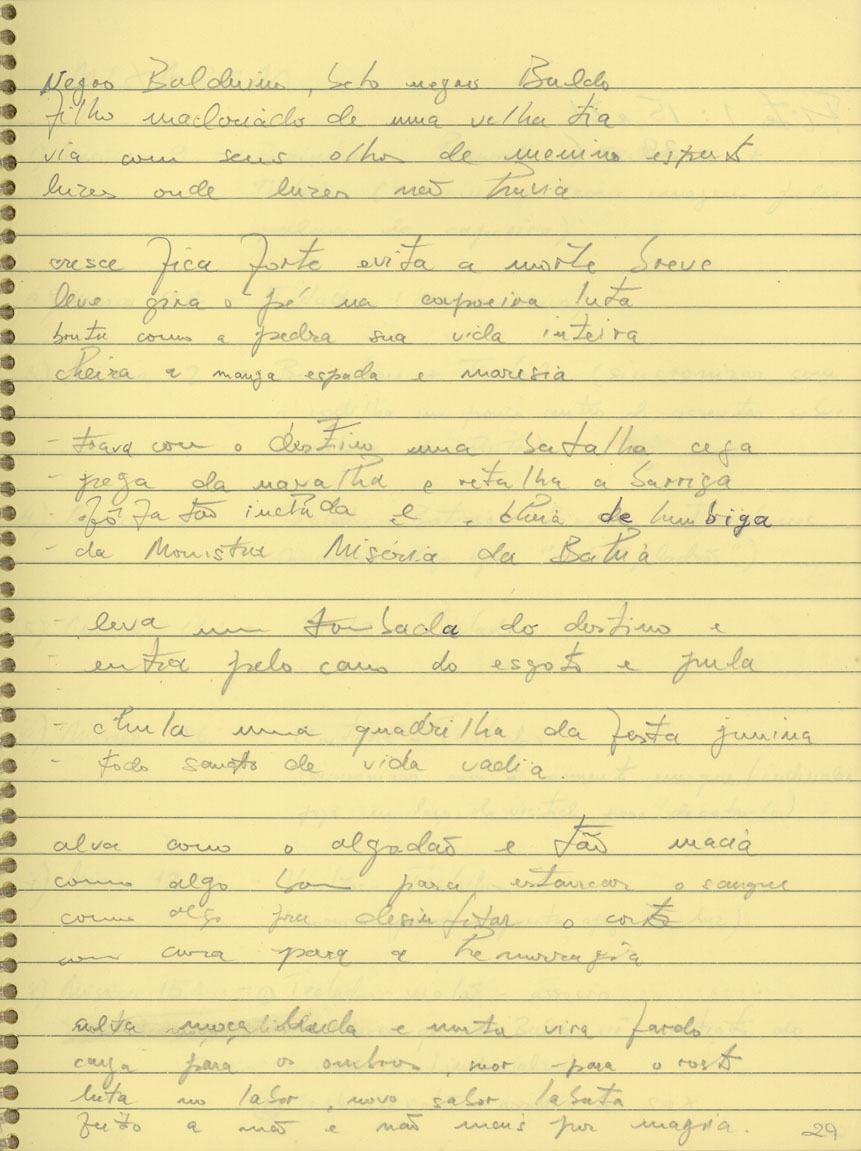 Negro Balduino, belo negro Baldo
filho malcriado de uma velha tia
via com seus olhos de menino esperto
luzes onde luzes não havia
cresce fica forte evita a morte breve
leve gira o pé na capoeira luta
bruta como a pedra sua vida inteira
cheira a manga espada e maresia
- trava com o destino uma batalha cega
- pega da navalha e retalha a barriga
- fofa tão inchada e cheia de lumbriga
- da Monstra Miséria da Bahia
- leva uma trombada do destino e
- entra pelo cano do esgoto e pula
- chula uma quadrilha da festa junina
- todo santo de vida vadia.
alva como o algodão e tão macia
como algo bom para estancar o sangue
como algo pra desinfetar o corte
com cura para a hemorragia
alta morta vira fardo
carga para os ombros, suor para o rosto
luta no labor, novo sabor labuta
feito a mão e não mais por magia.
29